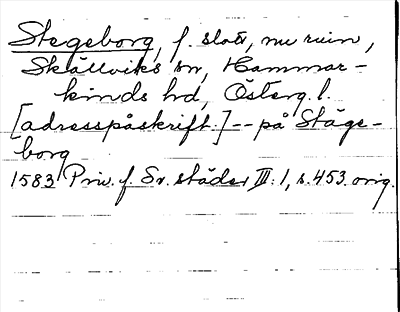 Stegeborg, f. slott, nu ruin,
Skällviks sn, Hammar-
kinds hd, Österg. l.
[adresspåskrift:] -- på Stäge-
borg
1583 Priv. f. Sv. städer III:1, s. 453. orig.